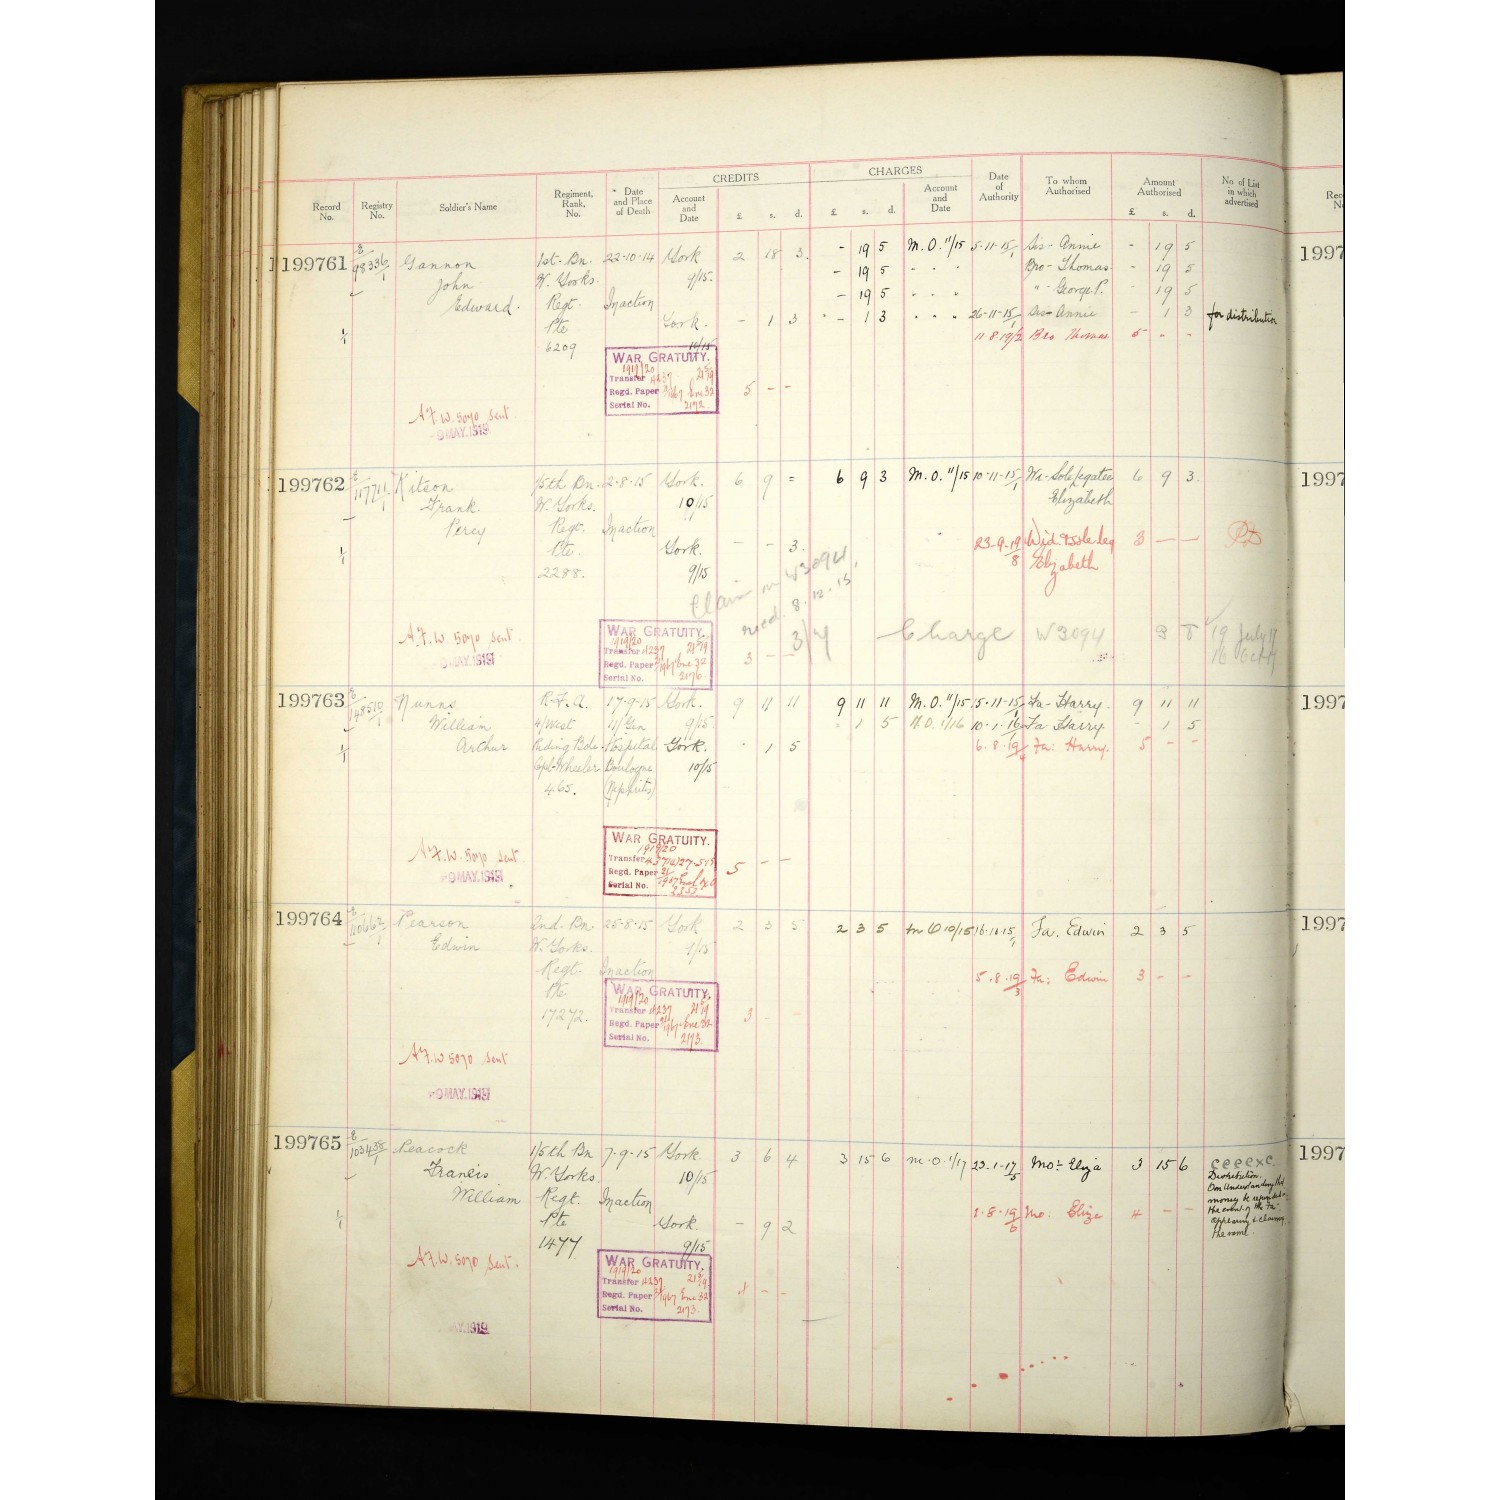 CREDITS CHARGES
Record No. Registry No. Soldier's Name Regiment, Rank, No. Date and Place of Death Account and Date £ s. d. £ s. d. Account and Date Date of Authority To whom Authorised Amount Authorised £ s. d. No of List in which advertised
199761 Gannon 1st Bn. 22-10-14 York 2 18 3. - 19 5 M.O. 11/15 5-11-15/1 Sis- Annie - 19 5
John W. Yorks. 9/15. - 19 5 " " " Bro- Thomas - 19 5
Edward. Regt. Inaction - 19 5 " " " " George P. - 19 5
Pte York. - 1 3 - 1 3 " " " 26-11-15/1 Sis- Annie - 1 3 for distribution
6209 10/15 11.8.19/2 Bro Thomas 5 - -
WAR GRATUITY.
1919/20
Transfer 4237
Regd. Paper
Serial No. 2172
5 - -
A.F.W. 5070 sent
9 MAY.1919
199762 Kitson 1/5th Bn. 2-8-15 York. 6 9 = 6 9 3 M.O. 11/15 10-11-15/1 Wi- Sole legatee 6 9 3.
Frank W. Yorks. 10/15 Elizabeth
Percy Regt. Inaction
Pte. York. - - 3. 23-9-19/8 Wid & sole leg 3 - - PD
2288. 9/15 Elizabeth
Claim on W3094
recd. 8.12.15
3/4 Charge W3094 19 July
A.F.W. 5070 sent
9 MAY.1919
WAR GRATUITY.
1919/20
Transfer 4237
Regd. Paper
Serial No. 2176
3 - -
199763 Nunns R.F.A. 17-9-15 York. 9 11 11 9 11 11 M.O. 11/15 5-11-15/1 Fa- Harry. 9 11 11
William 4/West 11/Gen 9/15 - 1 5 M.O. 1/16 10-1-16 Fa- Harry. - 1 5
Arthur Riding Bde Hospital York. - 1 5 6.8.19 Fa: Harry. 5 - -
Cpl-Wheeler Boulogne 10/15
465. (Nephritis)
WAR GRATUITY.
1919/20
Transfer
Regd. Paper
Serial No.
5 - -
A.F.W. 5070 sent
9 MAY.1919
199764 Pearson 2nd. Bn. 25-8-15 York 2 3 5 2 3 5 M O 10/15 16-10-15/1 Fa. Edwin 2 3 5
Edwin W. Yorks. 9/15
Regt. Inaction 5.8.19/3 Fa: Edwin 3 - -
Pte
17272.
WAR GRATUITY.
1919/20
Transfer 4237
Regd. Paper
Serial No. 2175
3 - -
A.F.W 5070 sent
9 MAY.1919
199765 Peacock 1/5th Bn 7-9-15 York. 3 6 4 3 15 6 M.O. 1/17 23-1-17/5 Mo:- Eliza 3 15 6
Francis W. Yorks. 10/15 Distribution.
William Regt. Inaction On understanding that
money be refunded in
Pte York. - 9 2 1.8.19/6 Mo: Eliza 4 - - the event of the Fa
appearing & claiming
1477 9/15 the same.
WAR GRATUITY.
1919/20
Transfer 4237
Regd. Paper
Serial No. 2173.
4 - -
A.F.W. 5070 sent.
MAY.1919